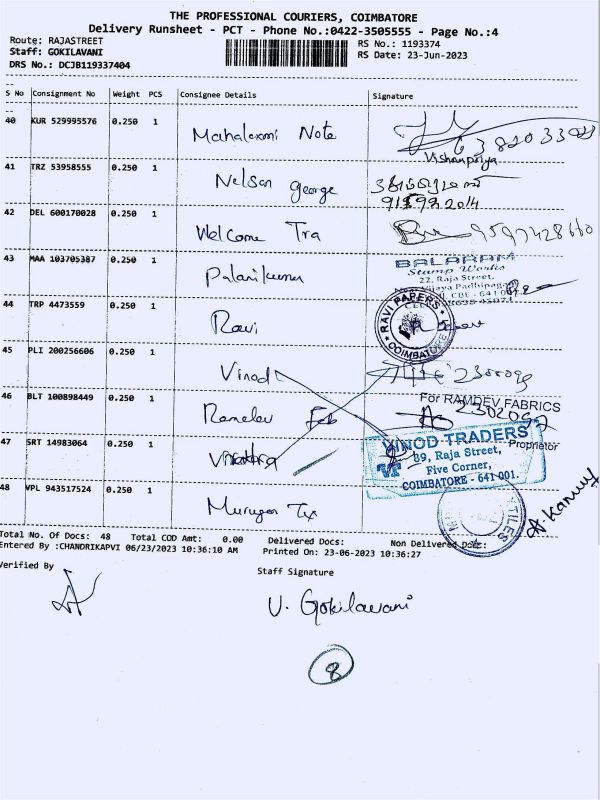 THE PROFESSIONAL COURIERS, COIMBATORE
Delivery Runsheet - PCT - Phone No.:0422-3505555 - Page No.:4
Route: RAJASTREET
RS No.: 1193374
Staff: GOKILAVANI
RS Date: 23-Jun-2023
DRS No.: DCJB119337404
S No Consignment No Weight PCS Consignee Details Signature
40 KUR 529995576 0.250 1 Mahalaxmi Note
Vishnupriya
41 TRZ 53958555 0.250 1 Nelson George
42 DEL 600170028 0.250 1 Welcome Tra
43 MAA 103705387 0.250 1 Palanikumar
BALARAM
Stamp Works
22, Raja Street,
CBE - 641 001
44 TRP 4473559 0.250 1 Ravi
RAVI PAPERS
COIMBATORE
45 PLI 200256606 0.250 1 Vinod
46 BLT 100898449 0.250 1 Ramdev Fab
For RAMDEV FABRICS
2302097
Proprietor
47 SRT 14983064 0.250 1
VINOD TRADERS
VT
89, Raja Street,
Five Corner,
COIMBATORE - 641 001.
48 VPL 943517524 0.250 1 Murugan Tex
Total No. Of Docs: 48 Total COD Amt: 0.00 Delivered Docs: Non Delivered Doc:
Entered By :CHANDRIKAPVI 06/23/2023 10:36:10 AM Printed On: 23-06-2023 10:36:27
Verified By
Staff Signature
V. Gokilavani
8